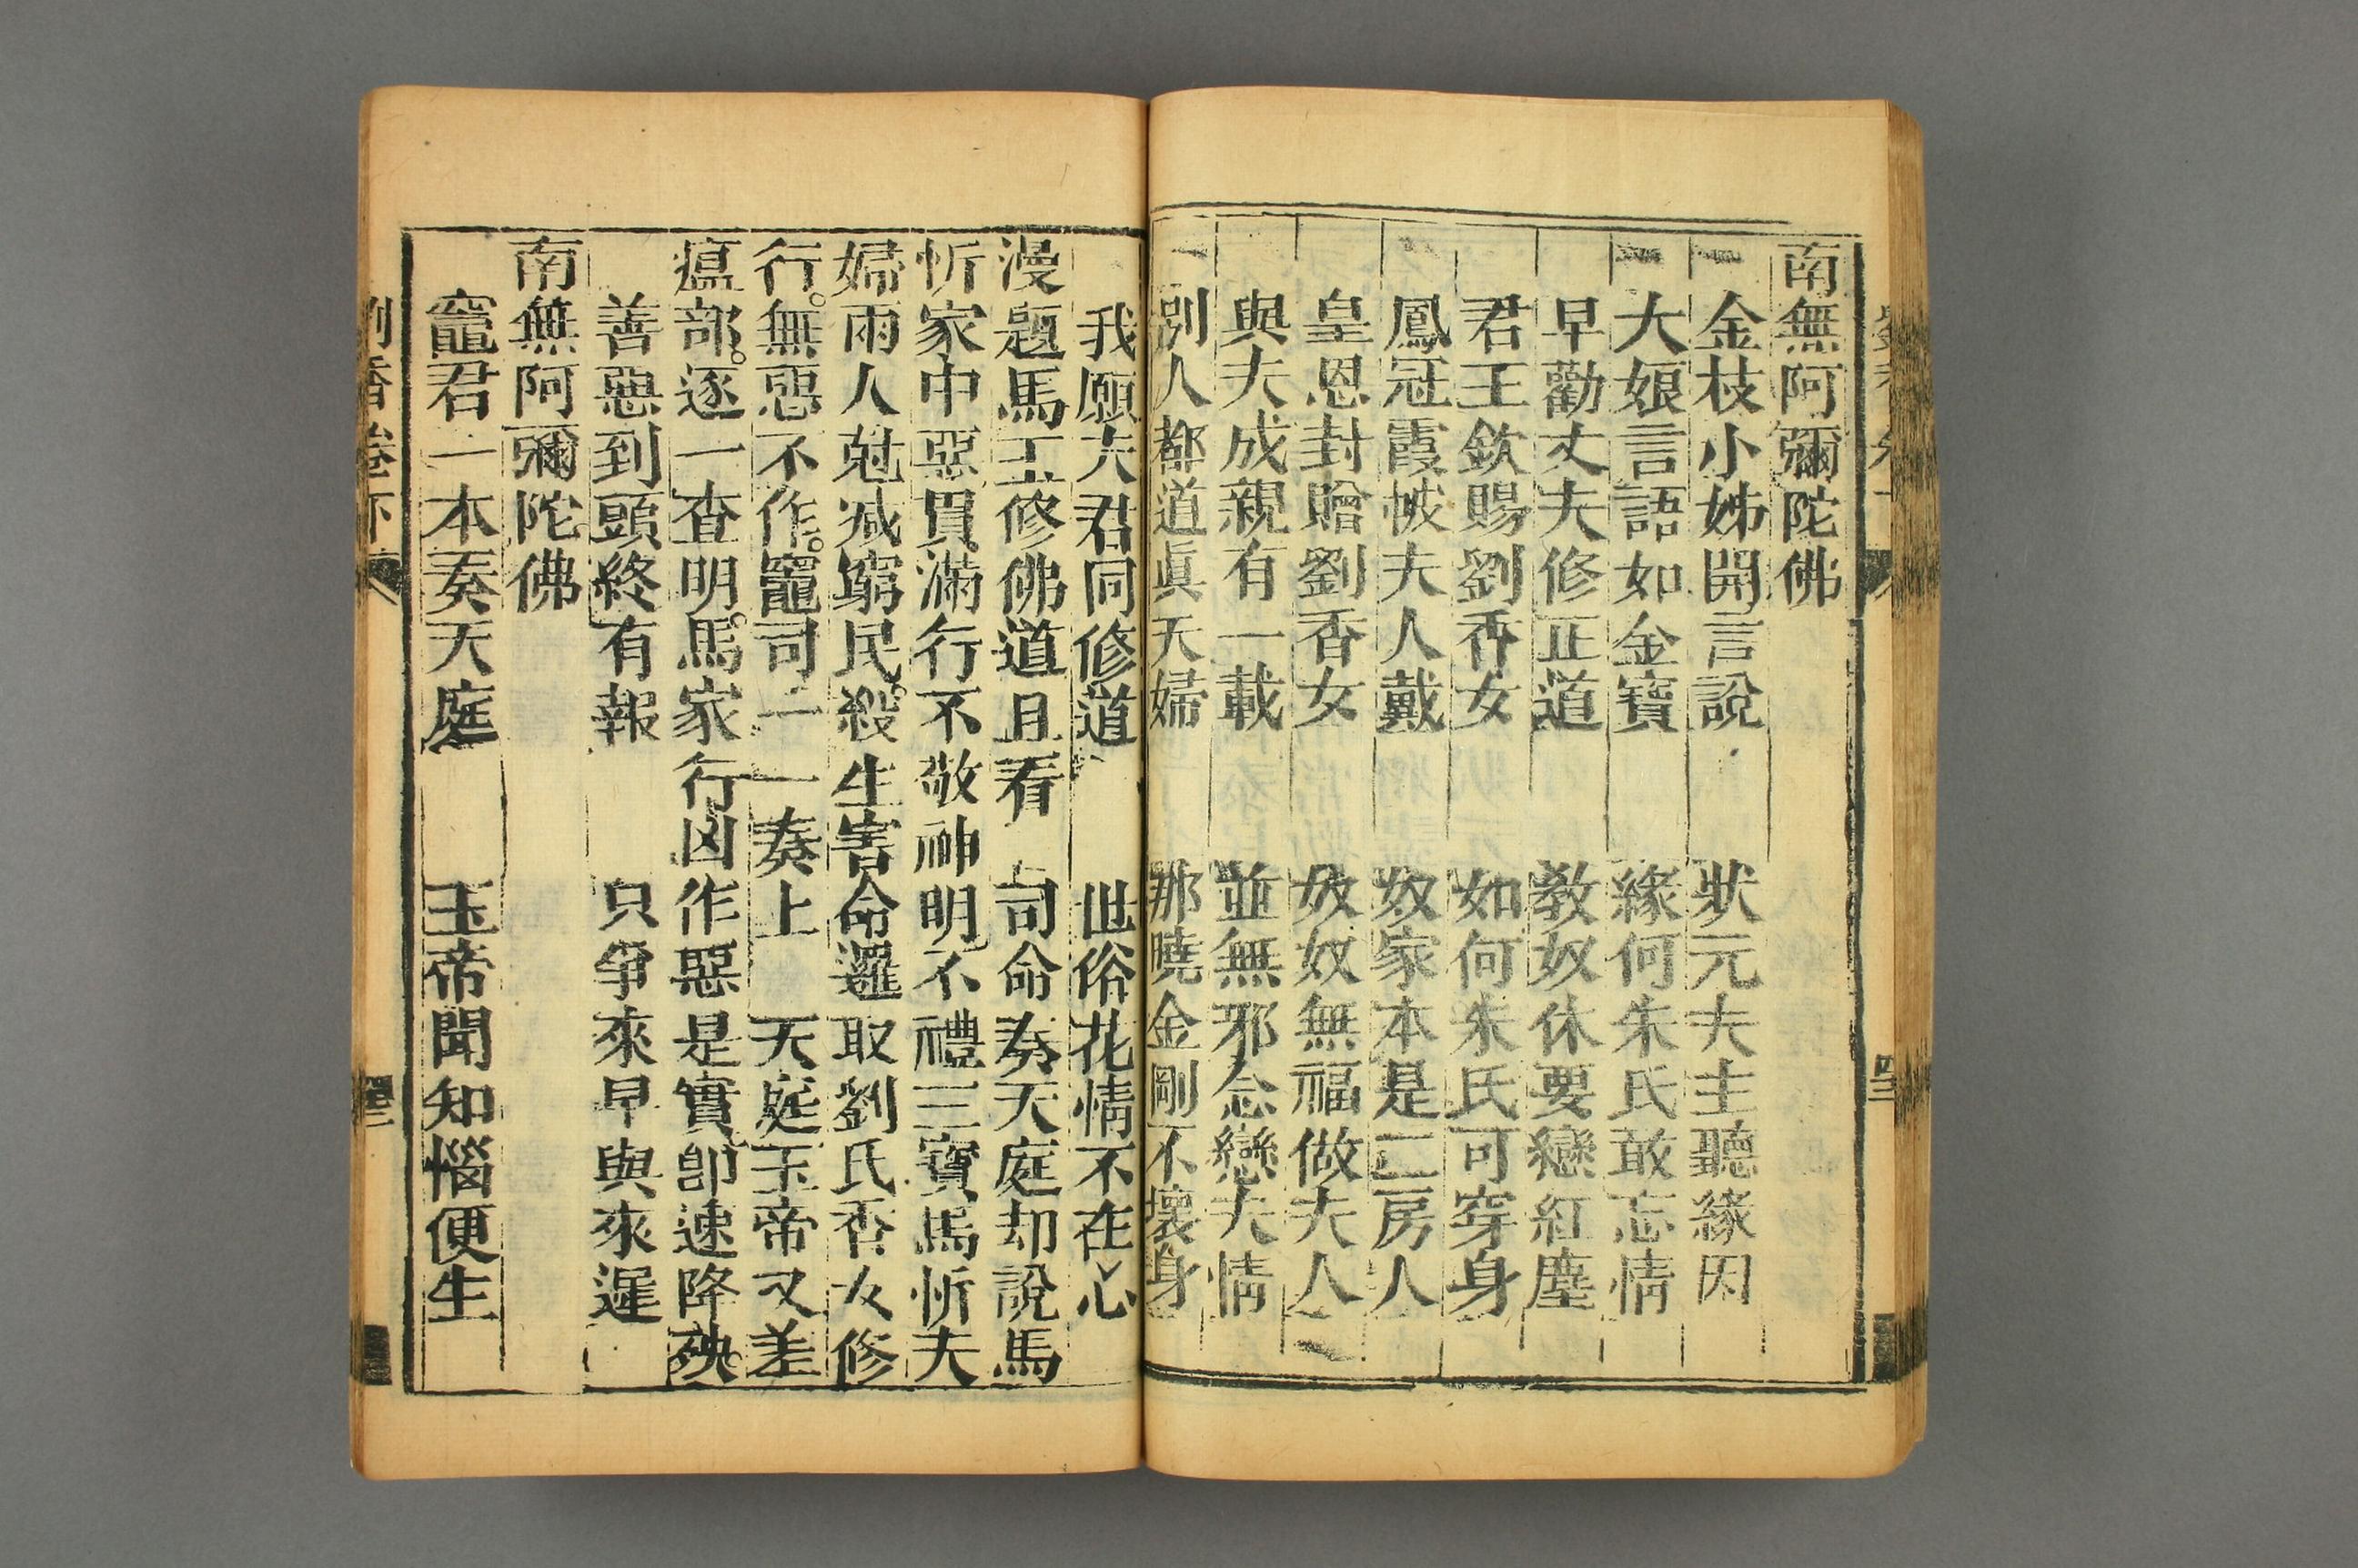 南無阿彌陀佛
金枝小姊開言說 狀元夫主聽緣因
大娘言語如金寶 緣何朱氏敢忘情
早勸丈夫修正道 教奴休要戀紅塵
君王欽賜劉香女 如何朱氏可穿身
鳳冠霞帔夫人戴 奴家本是二房人
皇恩封贈劉香女 奴奴無福做夫人
與夫成親有一載 並無邪念戀夫情
別人都道眞夫婦 那曉金剛不壞身
我願夫君同修道 世俗花情不在心
漫題馬玉修佛道且看 司命奏天庭却說馬
忻家中惡貫滿行不敬神明不禮三寶馬忻夫
婦兩人尅減窮民殺生害命邏取劉氏香女修
行無惡不作竈司一一奏上 天庭玉帝又差
瘟部逐一查明馬家行凶作惡是實卽速降殃
善惡到頭終有報 只爭來早與來遲
南無阿彌陀佛
竈君一本奏天庭 玉帝聞知惱便生
劉香卷下